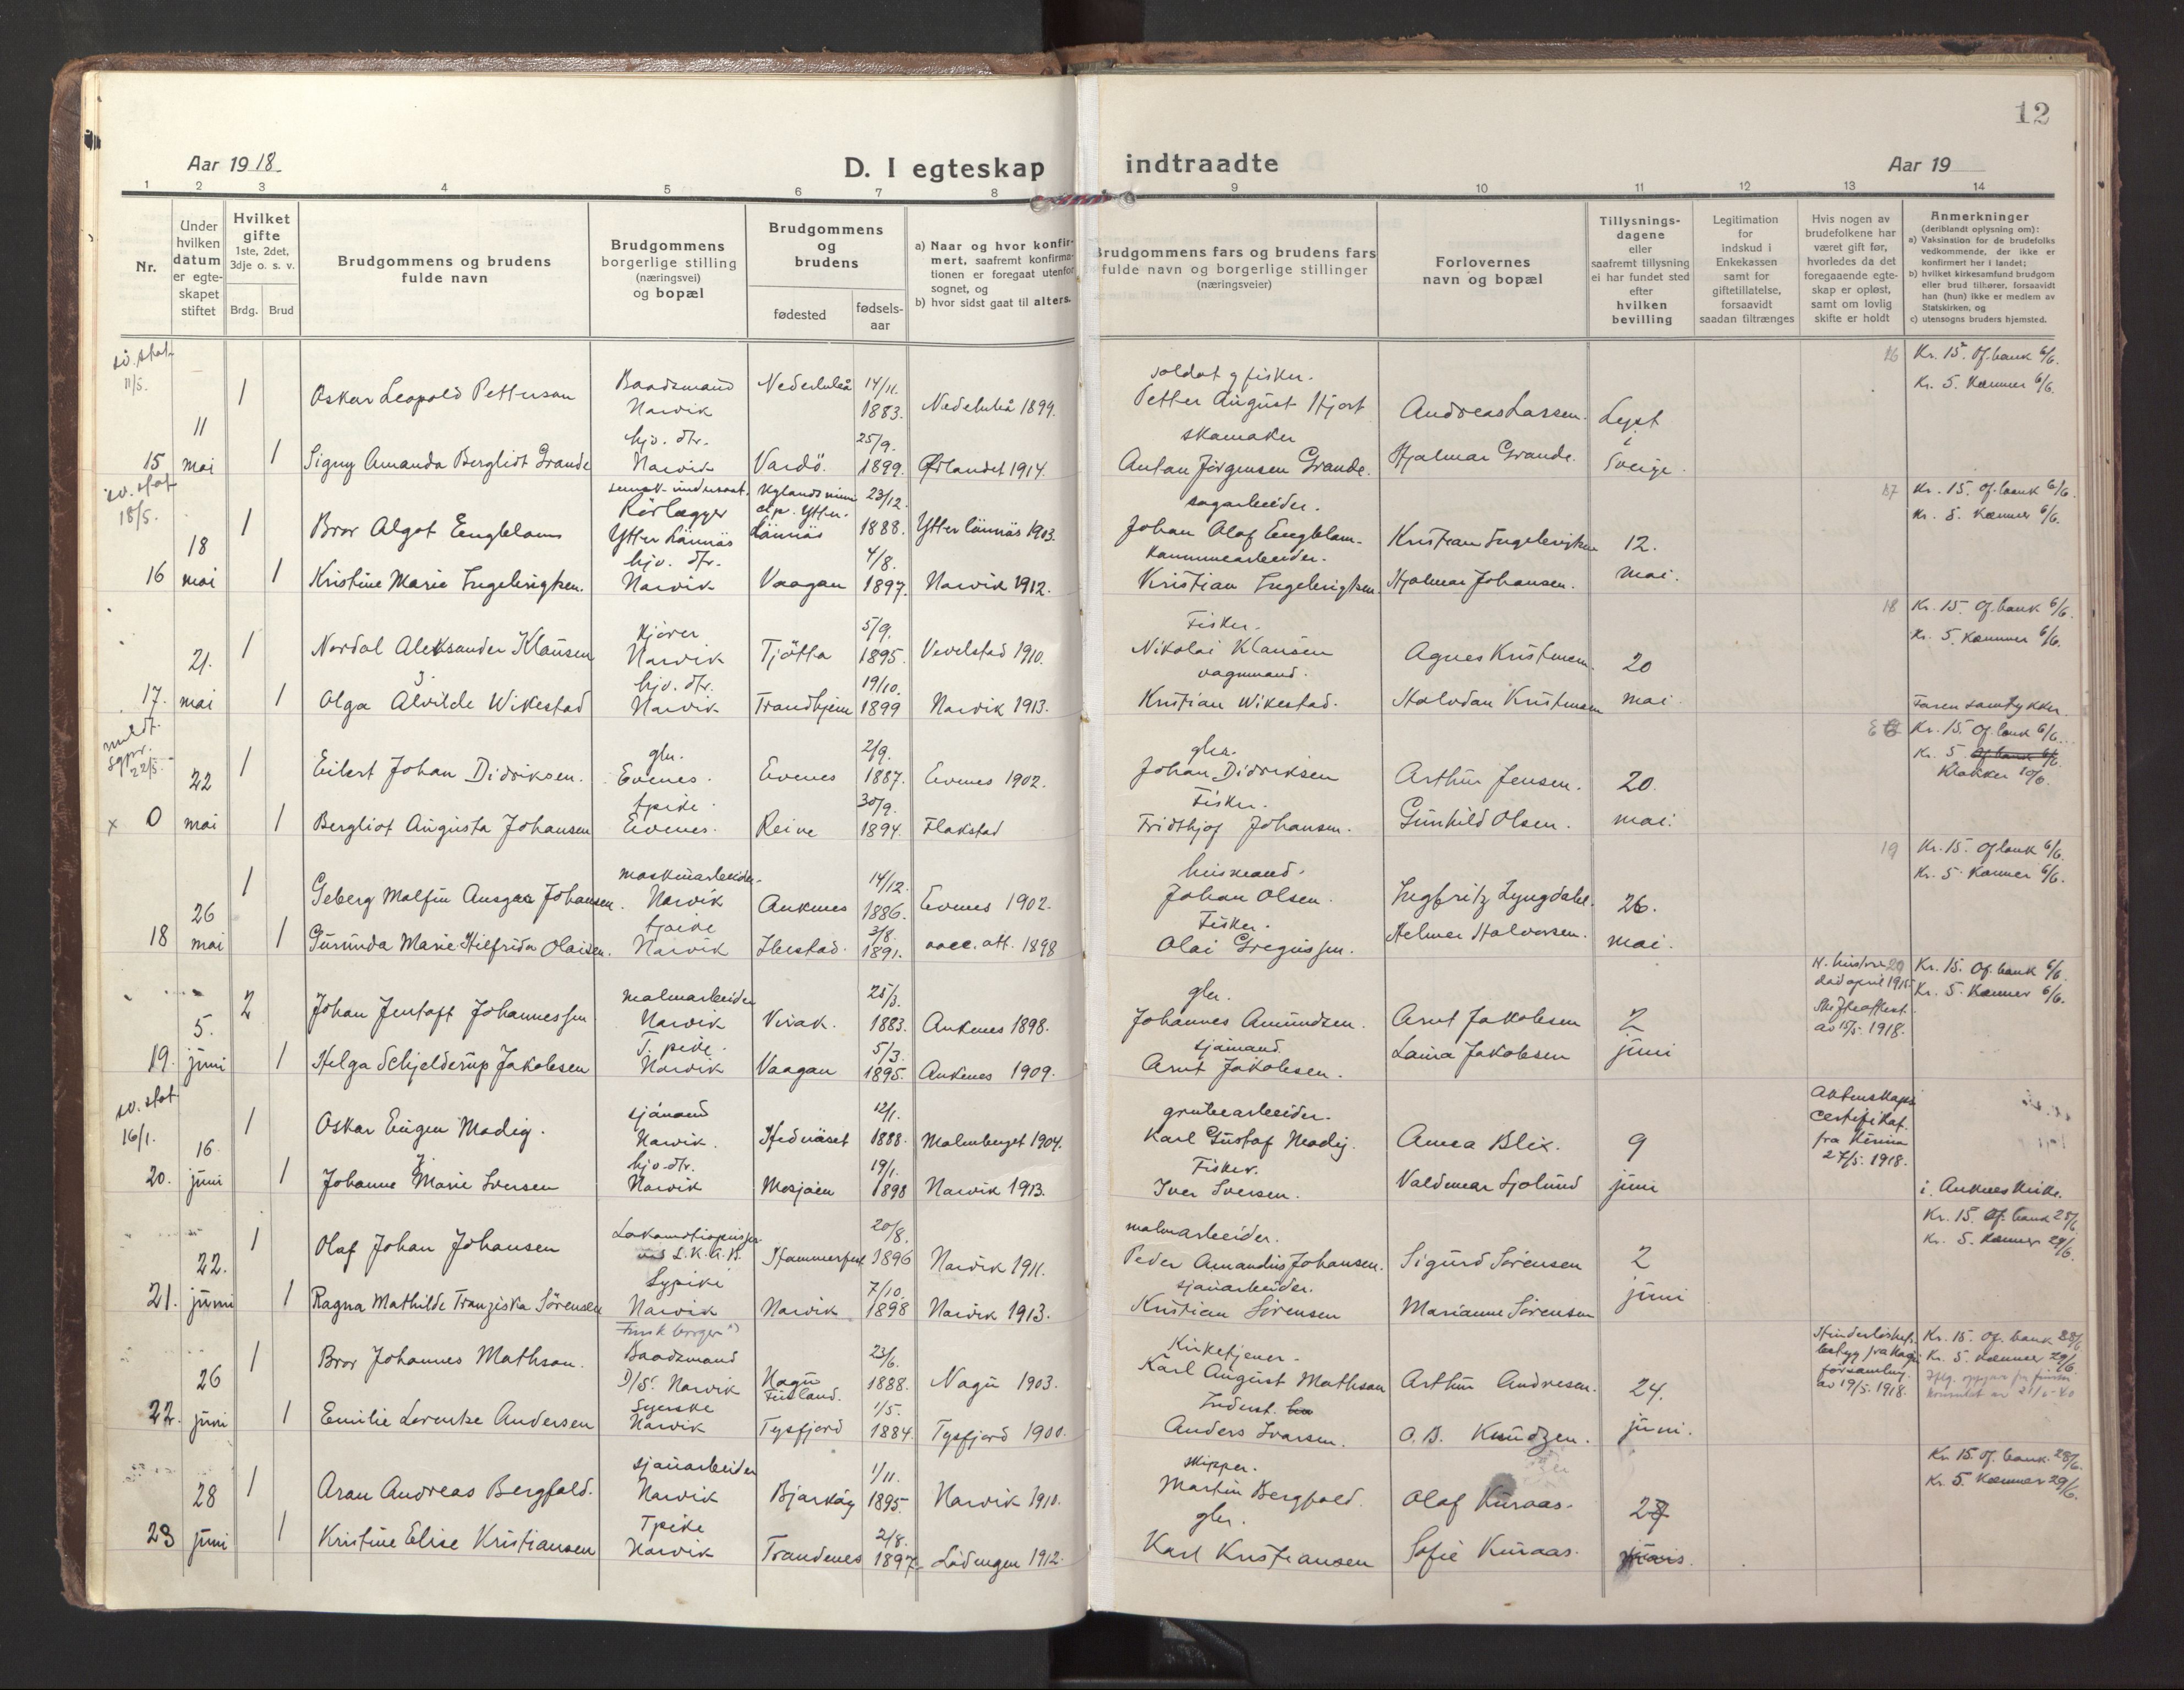 12
Aar 1918.
D. I egteskap
indtraadte
Aar 19
1 2 3 4 5 6 7 8 9 10 11 12 13 14
Nr.
Under hvilken datum er egteskapet stiftet
Hvilket gifte 1ste, 2det, 3dje o. s. v.
Brdg. Brud
Brudgommens og brudens fulde navn
Brudgommens borgerlige stilling (næringsvei) og bopæl
Brudgommens og brudens
fødested
fødsels-aar
a) Naar og hvor konfirmert, saafremt konfirmationen er foregaat utenfor sognet, og
b) hvor sidst gaat til alters.
Brudgommens fars og brudens fars fulde navn og borgerlige stillinger (næringsveier)
Forlovernes navn og bopæl
Tillysningsdagene eller saafremt tillysning ei har fundet sted efter hvilken bevilling
Legitimation for indskud i Enkekassen samt for giftetillatelse, forsaavidt saadan tiltrænges
Hvis nogen av brudefolkene har været gift før, hvorledes da det foregaaende egteskap er opløst, samt om lovlig skifte er holdt
Anmerkninger (deriblandt oplysning om):
a) Vaksination for de brudefolks vedkommende, der ikke er konfirmert her i landet;
b) hvilket kirkesamfund brudgom eller brud tilhører, forsaavidt han (hun) ikke er medlem av Statskirken, og
c) utensogns bruders hjemsted.
sv. stat. 11/5.
soldat g fisker. 16 Kr. 15. Of. bank 6/6.
1 Oskar Leopold Petterson Baadsmand Narvik Nederluleå 14/11. 1883. Nedeluleå 1899. Petter August Hjort Andreas Larsen. Kr. 5. Kæmner 6/6.
11 Lyst i Sverge.
15 mai 1 Signy Amanda Bergliot Grande hjv. dtr. Narvik Vardö. 25/9. 1899. Ørlandet 1914. skomaker Anton Jörgensen Grande. Hjalmar Grande.
sv. stat 18/5.
1 Bror Algot Engblom Rörlægger Ytter Lännäs 23/12. 1888. Ytter lännäs 1903. sagarbeider. Johan Olof Engblom. Kristian Ingebrigtsen 17 Kr. 15. Of. bank 6/6. Kr. 5. Kæmner 6/6.
18 12. mai.
16 mai 1 Kristine Marie Ingebrigtsen. hjv. dtr. Narvik Vaagan 4/8. 1897. Narvik 1912. Kristian Ingebrigtsen. Hjalmar Johansen.
1 Nordal Aleksander Klausen Kjörer Narvik Tjötta 5/9. 1895. Vevelstad 1910. Fisker. Nikolai Klausen Agnes Kristensen. 18 Kr. 15. Of. bank 6/6. Kr. 5. Kæmner 6/6.
21. 20 mai
17. mai 1 Olga Alvilde Wikestad hjv. dtr. Narvik Trondhjem 19/10. 1899 Narvik 1913. vognmand. Kristian Wikestad. Halvdan Kristensen Faren samtykker.
22/5.
1 Eilert Johan Didriksen. gbr. Evenes. Evenes 2/9. 1887. Evenes 1902. gbr. Johan Didriksen Arthur Jensen. Kr. 15. Of. bank 6/6. Kr. 5 Of. bank 6/6. Klokker 10/6.
22 20. mai.
x 0 mai 1 Bergliot Augusta Johansen tpike. Evenes. Reine 30/9. 1894. Flakstad Fisker. Fridthjof Johansen. Gunhild Olsen.
1 Geberg Malfin Ansgar Johansen. Narvik Ankenes 14/12. 1886. Evenes 1902. husmand. Johan Olsen. Ingfritz Lyngdahl. 19 Kr. 15. Of bank 6/6. Kr. 5. Kæmner 6/6.
26 26. mai.
18 mai 1 Gurunda Marie Hilfrida Olaisen. tjpike Narvik Ibestad. 3/8. 1891. vacc. att. 1898 Fisker. Olai Gregussen. Helmer Halvorsen.
2 Johan Jentoft Johannessen malmarbeider Narvik Virak. 25/3. 1883. Ankenes 1898. gbr. Johannes Amundsen. Arnt Jakobsen H. hustru död april 1915. Skifteattest. av 15/5. 1918. 20 Kr. 15. Of. bank 6/6. Kr. 5. Kæmner 6/6.
5. 2 juni
19. juni 1 Helga Schjelderup Jakobsen T. pike. Narvik Vaagan 5/3. 1895. Ankenes 1909. sjömand. Arnt Jakobsen. Laura Jakobsen
sv. stat. 16/1.
1 Oskar Eugen Modig. sjömand Narvik. Hednäset 12/1. 1888. Malmberget 1904. grubearbeider. Karl Gustaf Modig. Anna Blix. Æktenskaps certifikat. fra Kiruna 27/5. 1918.
16 9 juni
20. juni 1 Johanne Marie Iversen hjv. dtr. Narvik Mosjöen 19/1. 1898 Narvik 1913. Fisker. Iver Iversen. Valdemar Sjolund i. Ankenes kirke.
1 Olaf Johan Johansen Lokomotivpusser ved L.K.A.B. Hammerfest 20/8. 1896 Narvik 1911. malmarbeider. Peder Amandus Johansen. Sigurd Sörensen Kr. 15. Of. bank 28/6. Kr. 5. Kæmner 29/6.
22. 2 juni
21. juni 1 Ragna Mathilde Franziska Sörensen Sypike Narvik Narvik 7/10. 1898 Narvik 1913. sjauarbeider. Kristian Sörensen Marianne Sörensen
Finsk borger
1 Bror Johannes Mathson. Baadsmand D/S. Narvik Nagu Finland. 23/6. 1888. Nagu 1903. Kirketjener. Karl August Mathson Arthur Andresen. av 19/5. 1918. Kr. 15. Of. bank 28/6. Kr. 5. Kæmner 29/6.
26 24. juni.
22. juni 1 Emilie Lorentze Andersen Syerske Narvik Tysfjord 1/5. 1884. Tysfjord 1900. Inderst. Anders Ivarsen. O. B. Knudzen.
1 Aron Andreas Bergfald. sjauarbeider Narvik Bjarköy 1/11. 1895. Narvik 1910. skipper. Martin Bergfald. Olaf Kuraas. Kr. 15. Of. bank. 28/6. Kr. 5. Kæmner 29/6.
28
23 juni 1 Kristine Elise Kristiansen Tpike Narvik Trondenes 2/8. 1897. Lödingen 1912. gbr. Karl Kristiansen Sofie Kuraas.